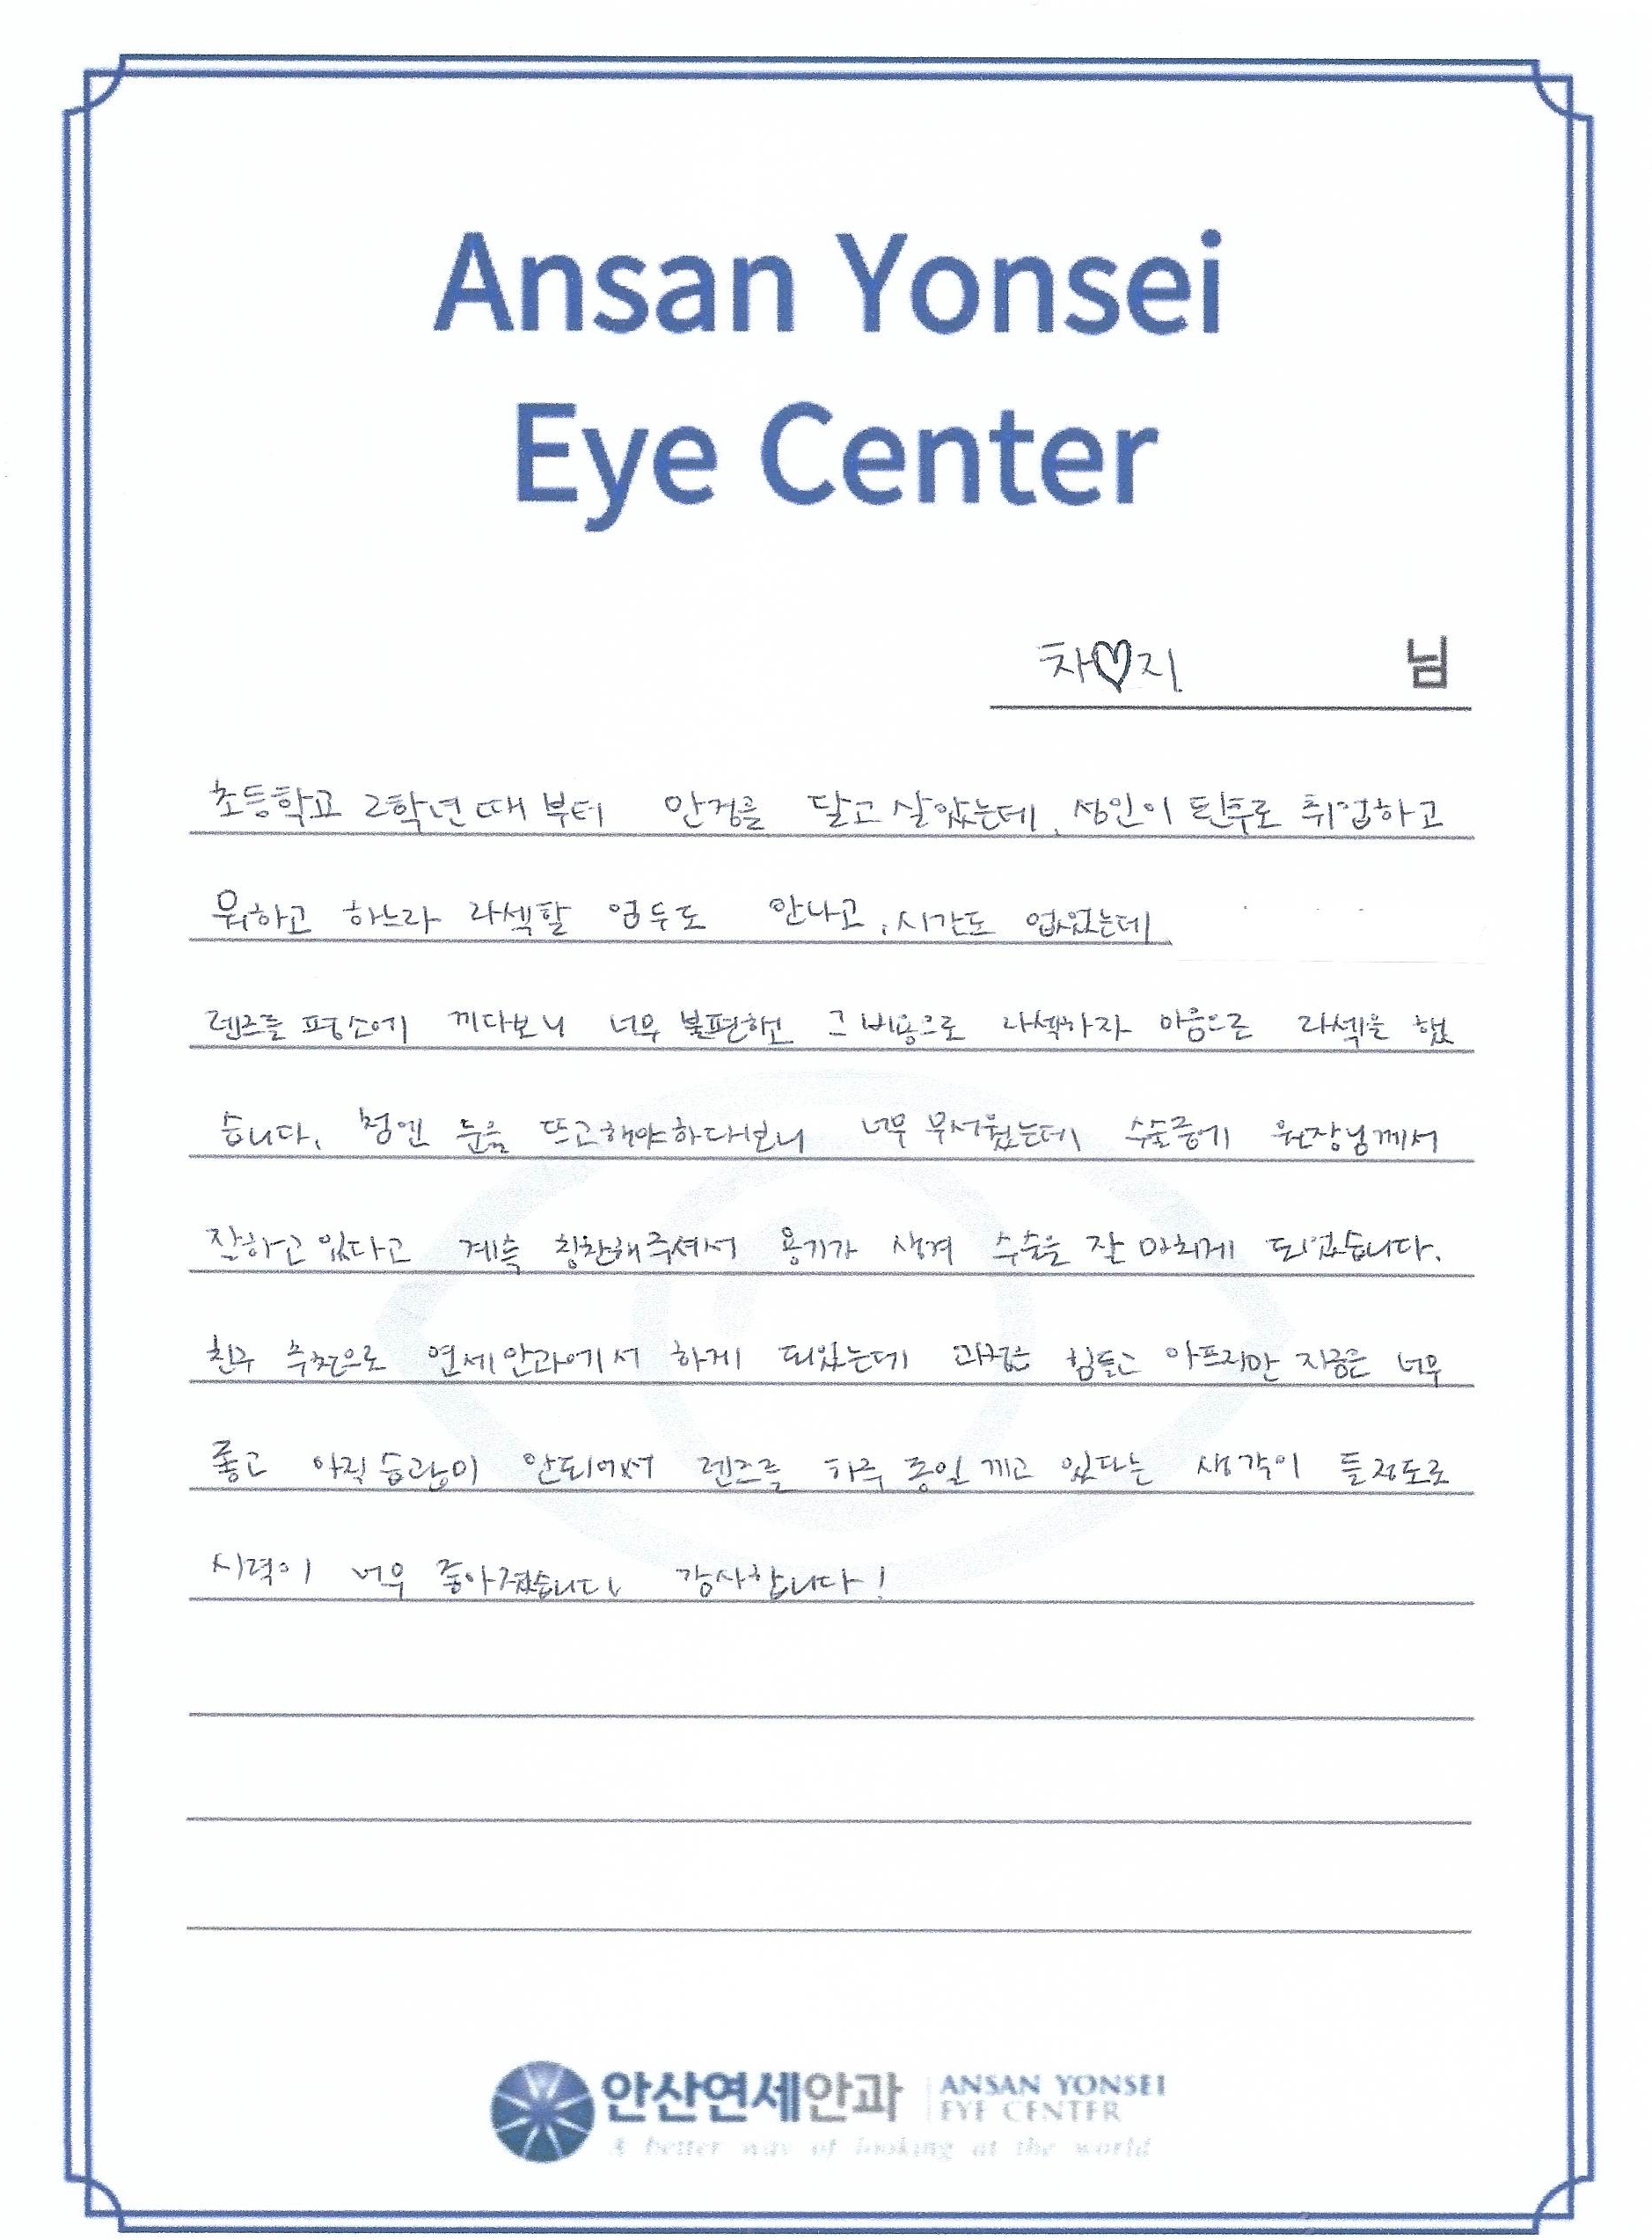 Ansan Yonsei
Eye Center
차♡지 님
초등학교 2학년때 부터 안경을 달고 살았는데, 성인이 된후로 취업하고
뭐하고 하느라 라섹할 엄두도 안나고, 시간도 없었는데
렌즈를 평소에 끼다보니 너무 불편하고 그 비용으로 라섹하자 마음으로 라섹을 했
습니다. 첨엔 눈을 뜨고해야하다보니 너무 무서웠는데 수술중에 원장님께서
잘하고 있다고 계속 칭찬해주셔서 용기가 생겨 수술을 잘 마치게 되었습니다.
친구 추천으로 연세안과에서 하게 되었는데 과정은 힘들고 아프지만 지금은 너무
좋고 아직 습관이 안되어서 렌즈를 하루 종일 끼고 있다는 생각이 들정도로
시력이 너무 좋아졌습니다. 감사합니다!
안산연세안과 ANSAN YONSEI
EYE CENTER
A better way of looking at the world